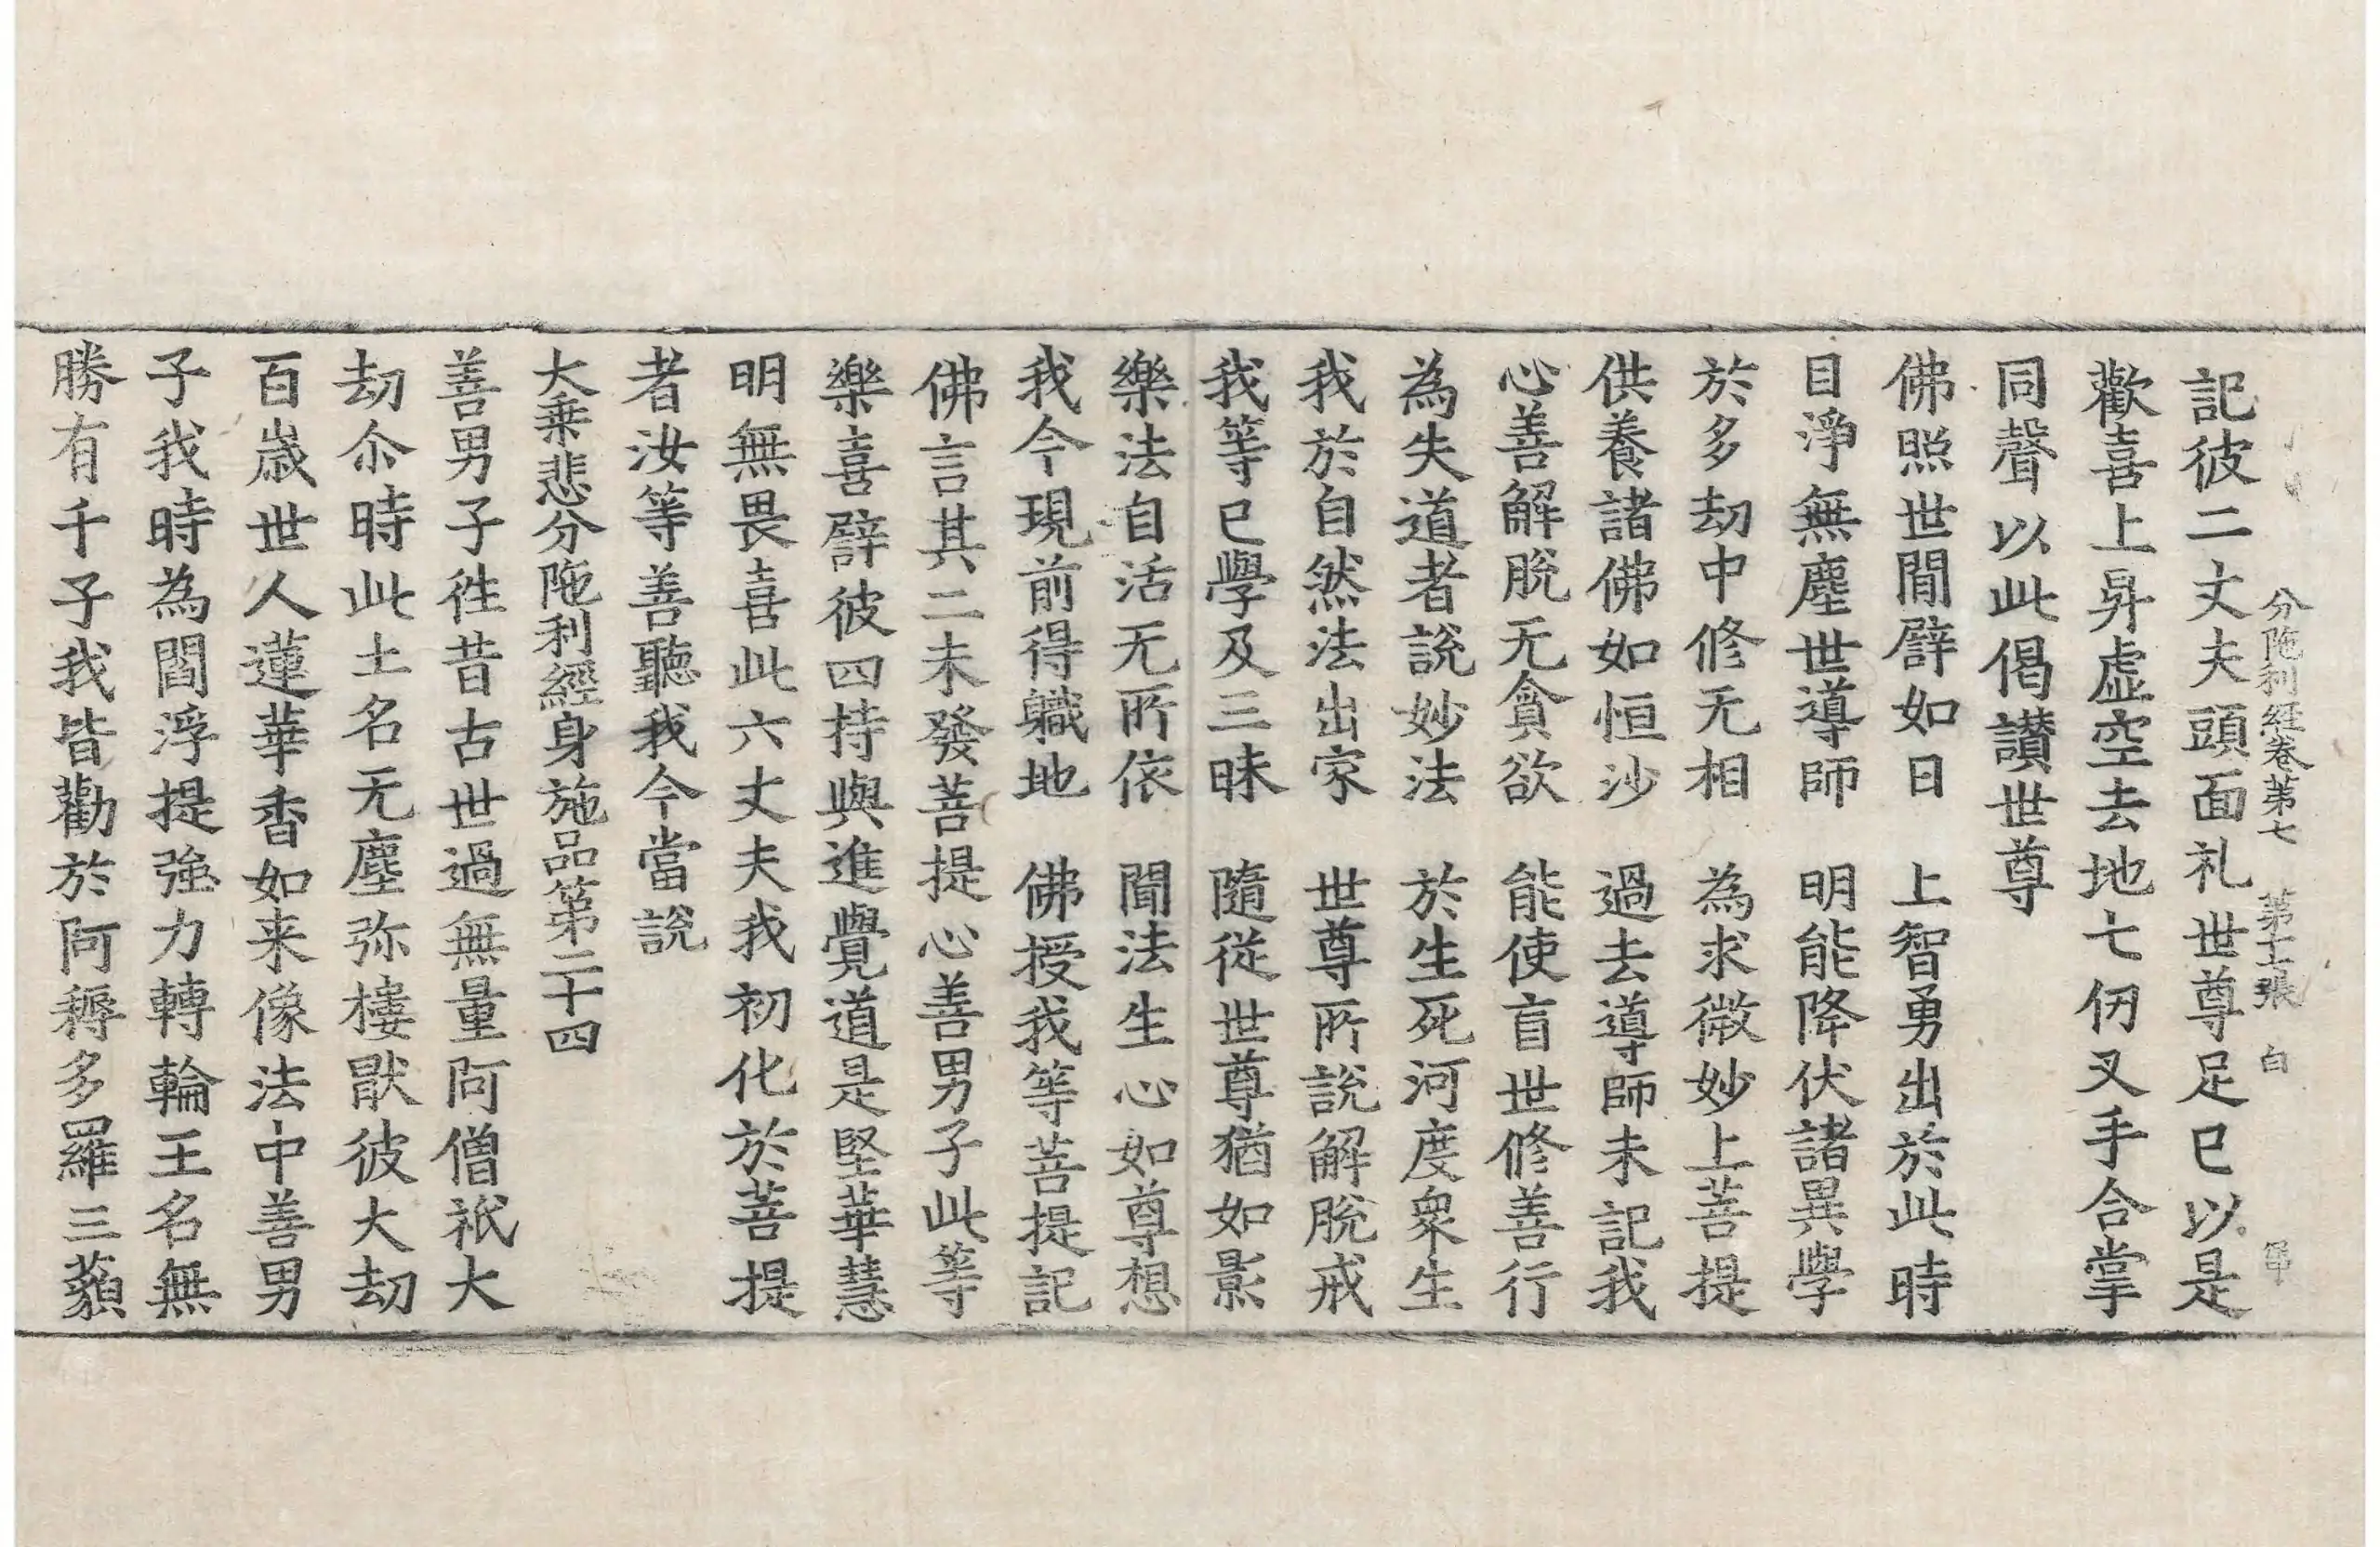 分陁利經卷第七　第十二張　白
記彼二丈夫頭面礼世尊足已以是
歡喜上昇虛空去地七仞叉手合掌
同聲以此偈讃世尊
佛照世間譬如日　上智勇出於此時
目淨無塵世導師　明能降伏諸異學
於多劫中修无相　為求微妙上菩提
供養諸佛如恒沙　過去導師未記我
心善解脫无貪欲　能使盲世修善行
為失道者說妙法　於生死河度衆生
我於自然法出家　世尊所說解脫戒
我等已學及三昧　隨從世尊猶如影
樂法自活无所依　聞法生心如尊想
我今現前得軄地　佛授我等菩提記
佛言其二未發菩提心善男子此等
樂喜譬彼四持與進覺道是堅華慧
明無畏喜此六丈夫我初化於菩提
者汝等善聽我今當說
大乘悲分陁利經身施品第二十四
善男子徃昔古世過無量阿僧祇大
劫尒時此土名无塵弥樓猒彼大劫
百歲世人蓮華香如来像法中善男
子我時為閻浮提強力轉輪王名無
勝有千子我皆勸於阿耨多羅三藐